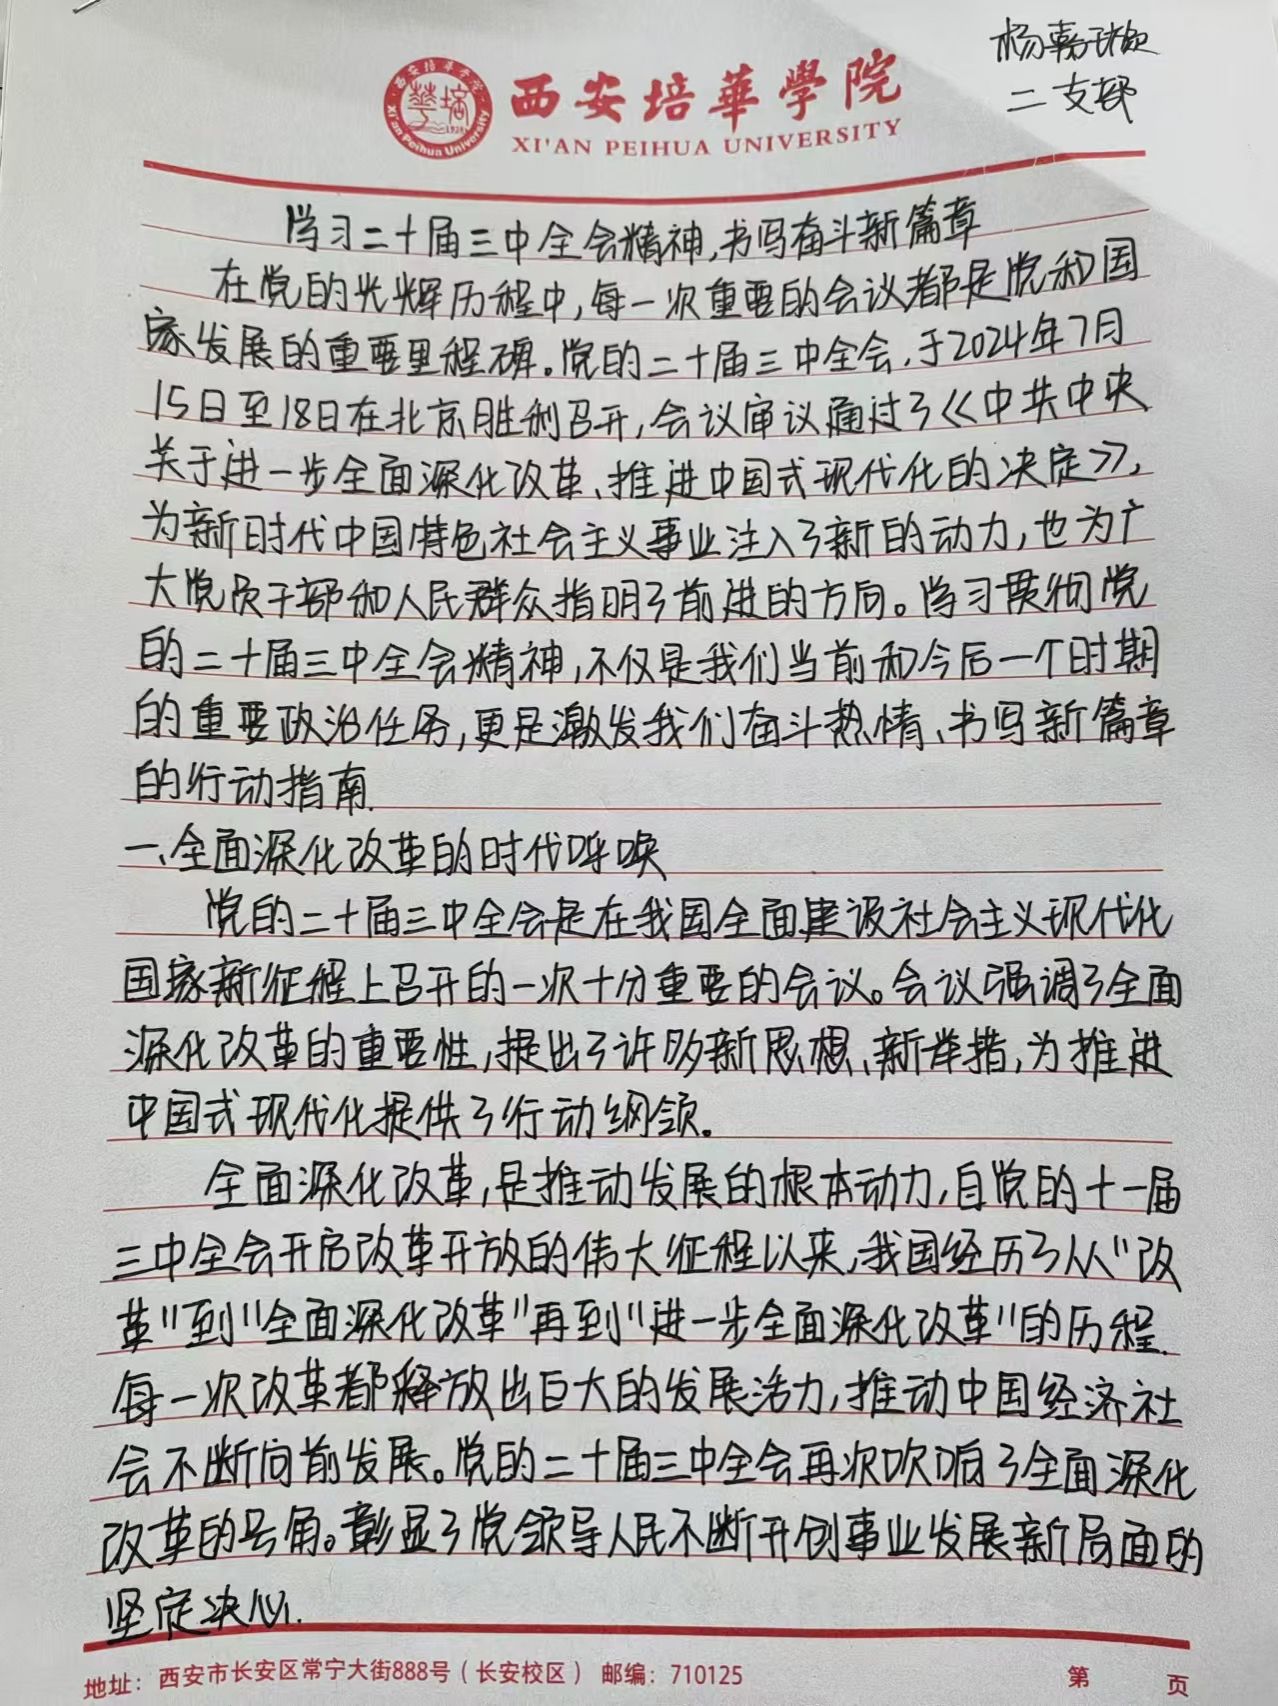 杨嘉
二支部
西安培華學院
XI'AN PEIHUA UNIVERSITY
西安培华学院
1928
Xi'an Peihua University
学习二十届三中全会精神,书写奋斗新篇章
在党的光辉历程中,每一次重要的会议都是党和国
家发展的重要里程碑。党的二十届三中全会,于2024年7月
15日至18日在北京胜利召开,会议审议通过了《中共中央
关于进一步全面深化改革、推进中国式现代化的决定》,
为新时代中国特色社会主义事业注入了新的动力,也为广
大党员干部和人民群众指明了前进的方向。学习贯彻党
的二十届三中全会精神,不仅是我们当前和今后一个时期
的重要政治任务,更是激发我们奋斗热情、书写新篇章
的行动指南.
一、全面深化改革的时代呼唤
党的二十届三中全会是在我国全面建设社会主义现代化
国家新征程上召开的一次十分重要的会议。会议强调了全面
深化改革的重要性,提出了许多新思想、新举措,为推进
中国式现代化提供了行动纲领。
全面深化改革,是推动发展的根本动力,自党的十一届
三中全会开启改革开放的伟大征程以来,我国经历了从"改
革"到"全面深化改革"再到"进一步全面深化改革"的历程.
每一次改革都释放出巨大的发展活力,推动中国经济社
会不断向前发展。党的二十届三中全会再次吹响了全面深化
改革的号角。彰显了党领导人民不断开创事业发展新局面的
坚定决心.
地址：西安市长安区常宁大街888号（长安校区） 邮编：710125 第 页